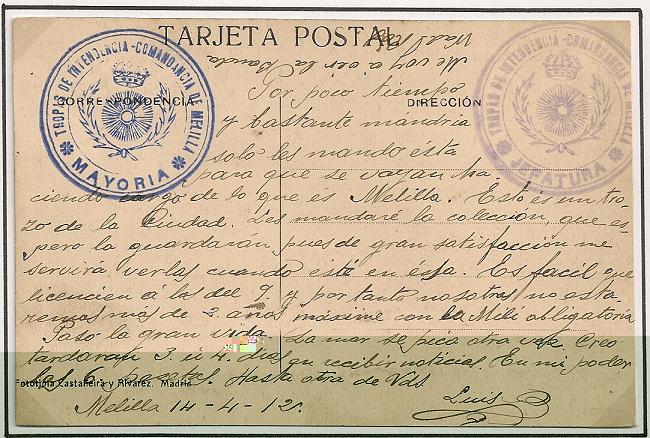 TARJETA POSTAL
CORRESPONDENCIA
DIRECCIÓN
TROPAS DE INTENDENCIA-COMANDANCIA DE MELILLA
MAYORIA
TROPAS DE INTENDENCIA-COMANDANCIA DE MELILLA
JEFATURA
Me voy a ver la
Por poco tiempo
y bastante mandria
solo les mando ésta
para que se vayan ha-
ciendo cargo de lo que és Melilla. Esto és un tro-
zo de la Ciudad. Les mandaré la coleccion, que es-
pero la guardaran pues de gran satisfacción me
servirá verlas cuando esté en ésa. Es facil que
licencien á los del 9 y por tanto nosotros no esta-
remos más de 2 años máxime con la Mili obligatoria
Paso la gran vida. La mar se pica otra vez. Creo
tardaran 3 ú 4 dias en recibir noticias. En mi poder
los 6 paquetes. Hasta otra de Vds.
Luis
Fototipia Castañeira y Alvarez. Madrid
Melilla 14-4-12.